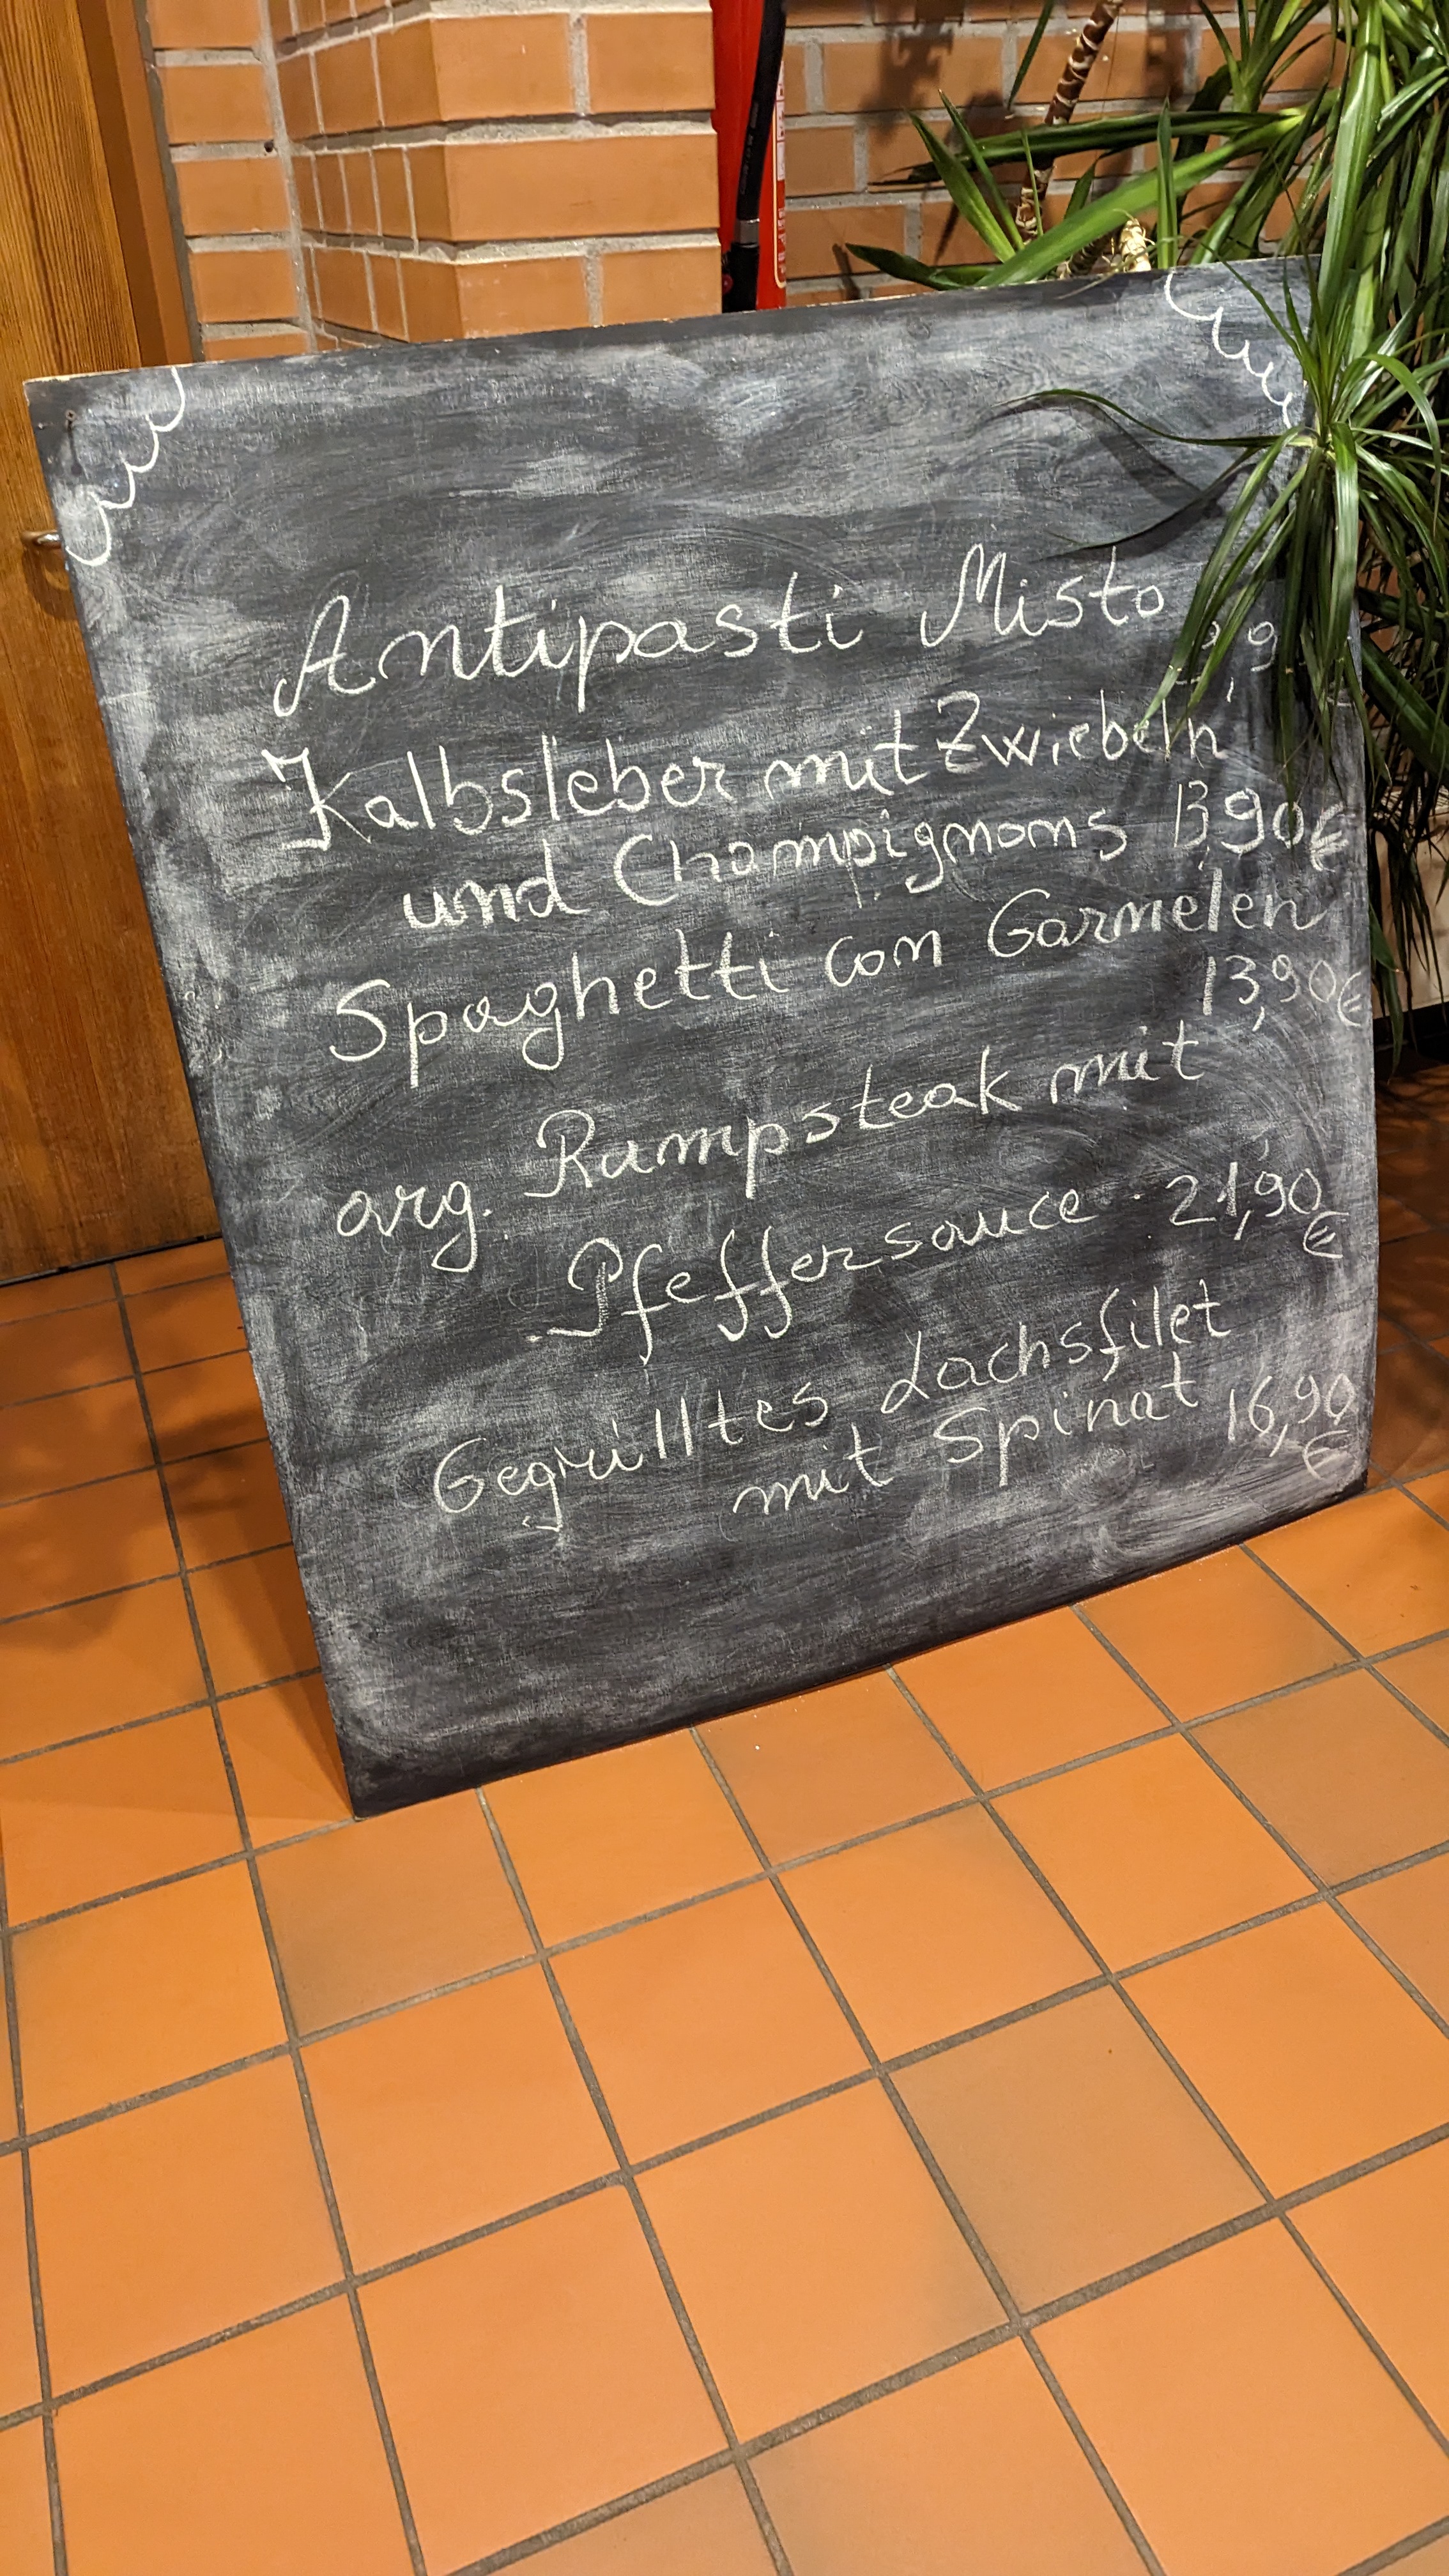 Antipasti Misto
Kalbsleber mit Zwiebeln
und Champignoms 13,90€
Spaghetti con Garnelen
13,90€
arg. Rumpsteak mit
Pfeffersauce 21,90
€
Gegrilltes Lachsfilet
mit Spinat 16,90
€